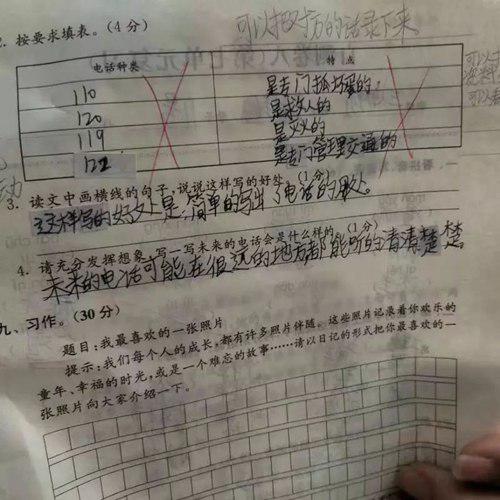 2. 按要求填表。(4分)
可以把对方的话录下来
电话种类 特点
110 是专门抓坏蛋的
120 是救人的
119 是灭火的
122 是专门管理交通的
3. 读文中画横线的句子,说说这样写的好处。(1分)
这样写的好处是,简单的写出了电话的用处。
4. 请充分发挥想象,写一写未来的电话会是什么样的。(1分)
未来的电话可能在很远的地方都能听的清清楚楚
九、习作。(30分)
题目:我最喜欢的一张照片
提示:我们每个人的成长,都有许多照片伴随。这些照片记录着你欢乐的
童年、幸福的时光,或是一个难忘的故事……请以日记的形式把你最喜欢的一
张照片向大家介绍一下。